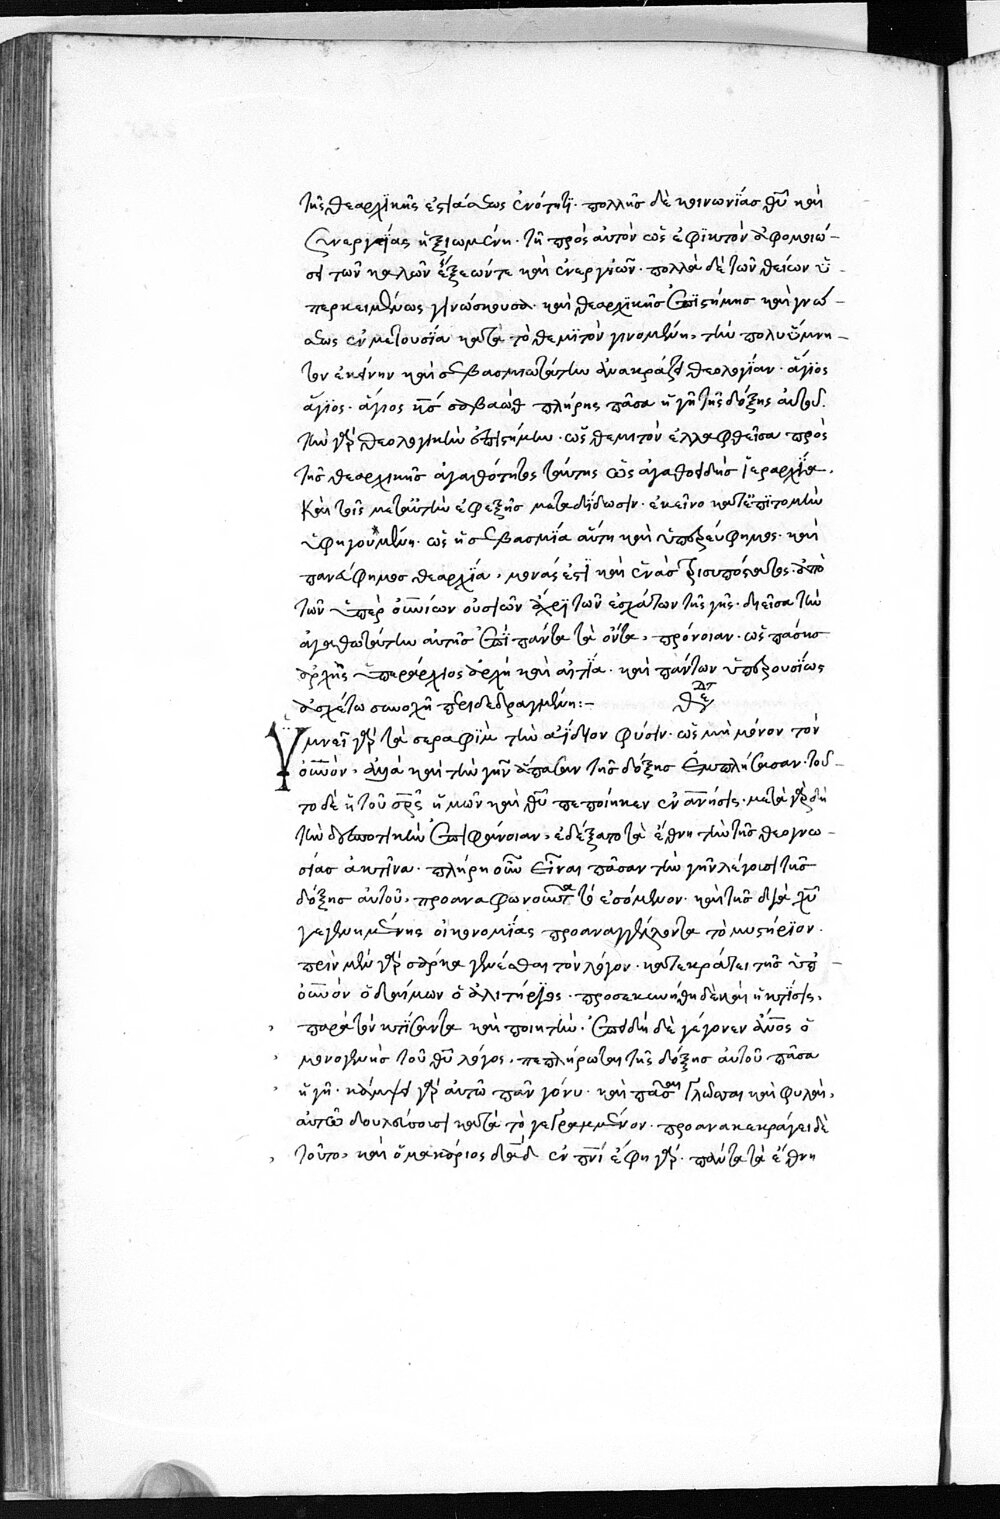 τῆς θεαρχικῆς ἑστιάσεως ἑνότητι· πολλῆς δὲ κοινωνίας θῦ καὶ
συνεργείας ἠξιωμένη· τῇ πρὸς αὐτὸν ὡς ἐφικτὸν ἀφομοιώ-
σει τῶν καλῶν ἕξεών τε καὶ ἐνεργιῶν· πολλὰ δὲ τῶν θείων ὑ-
περκειμένως γινώσκουσα· καὶ θεαρχικῆς ἐπιστήμης καὶ γνώ-
σεως ἐν μετουσία κατὰ τὸ θεμιτὸν γινομένη, τὴν πολυύμνη-
τον ἐκείνην καὶ σεβασμιωτάτην ἀνακράζει θεολογίαν· ἅγιος
ἅγιος· ἅγιος κς σαβαὼθ πλήρης πᾶσα ἡ γῆ τῆς δόξης αὐτοῦ.
τὴν γὰρ θεολογικὴν ἐπιστήμην· ὡς θεμιτὸν ἐλλαφθεῖσα πρὸς
τῆς θεαρχικῆς ἀγαθότητος ταύτης ὡς ἀγαθοειδὴς ἱεραρχία.
Καὶ τοῖς μετ' αὐτὴν ἐφεξῆς μεταδίδωσιν· ἐκεῖνο κατ' ἐπιτομὴν
ὑφηγουμένη· ὡς ἡ σεβασμία αὕτη καὶ ὑπερεύφημος· καὶ
πανεύφημος θεαρχία, μονάς ἐστι καὶ ἑνὰς τρισυπόστατος· ἀπὸ
τῶν ὑπερουνίων οὐσιῶν ἄχρι τῶν ἐσχάτων τῆς γῆς· διεῖσα τὴν
ἀγαθωτάτην αὐτῆς ἐπὶ πάντα τὰ ὄντα, πρόνοιαν· ὡς πάσης
ἀρχῆς ὑπεράρχιος ἀρχὴ καὶ αἰτία· καὶ πάντων ὑπερουσίως
ἀσχέτω συνοχῆ περιδεδραγμένη:-
Ὑμνεῖ γὰρ τὰ σεραφὶμ τὴν ἀΐδιον φύσιν· ὡς μὴ μόνον τὸν
οὐνόν, ἀλλὰ καὶ τὴν γῆν ἅπασαν τῆς δόξης ἐμπλήσασαν· τοῦ-
το δὲ ἡ τοῦ σρς ἡμῶν καὶ θῦ πεποίηκεν ἐνανησις· μετὰ γὰρ δὴ
τὴν δεσποτικὴν ἐπιφάνειαν, ἐδέξατο τὰ ἔθνη τὴν τῆς θεογνω-
σίας ἀκτῖνα· πλήρη οὖν εἶναι πᾶσαν τὴν γῆν λέγοισι τῆς
δόξης αὐτοῦ, προαναφωνοῦντα τὸ ἐσόμενον· καὶ τῆς διὰ χῦ
γεγενημένης οἰκονομίας προαναγγέλοντα τὸ μυστήριον·
πρὶν μὲν γὰρ σάρκα γενέσθαι τὸν λόγον· κατεκράτει τῆς ὑπ' -
οὐνὸν ὁ δαίμων ὁ ἀλιτήριος· προσεκυνήθη δὲ καὶ ἡ κτίσις,
παρὰ τὸν κτίσαντα καὶ ποιητὴν· Ἐπειδὴ δὲ γέγονεν ἄνος ὁ
μονογενὴς τοῦ θῦ λόγος, πεπλήρωται τῆς δόξης αὐτοῦ πᾶσα
ἡ γῆ· κάμψει γὰρ αὐτῶ πᾶν γόνυ· καὶ πᾶσαι γλῶσσαι καὶ φυλαὶ,
αὐτῷ δουλεύσοισι κατὰ τὸ γεγραμμένον· προανακεκράγει δὲ
τοῦτο, καὶ ὁ μακάριος δᾱδ ἐν πνι ἔφη γὰρ· πάντα τὰ ἔθνη